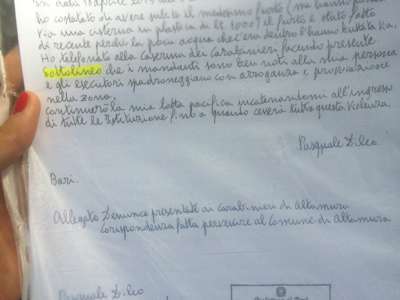 ho costatato di avere subito il medesimo furto (mi hanno
via una cisterna in plastica di lt. 1000) il furto è stato fatto
di recente perchè la poca acqua che c'era dentro l'hanno buttata via.
Ho telefonato alla caserma dei Carabinieri facendo presente
sottolineo che i mandanti sono ben noti alla mia persona
e gli esecutori spadroneggiano con arroganza e
nella zona.
Continuerò la mia lotta pacifica incatenandomi all'ingresso
di tutte le Istituzione fino a quando cesserà tutta questa violenza.
Pasquale Di Leo
Bari.
Allegato Denunce presentate ai Carabinieri di Altamura
Corrispondenza fatta pervenire al Comune di Altamura
Pasquale Di Leo